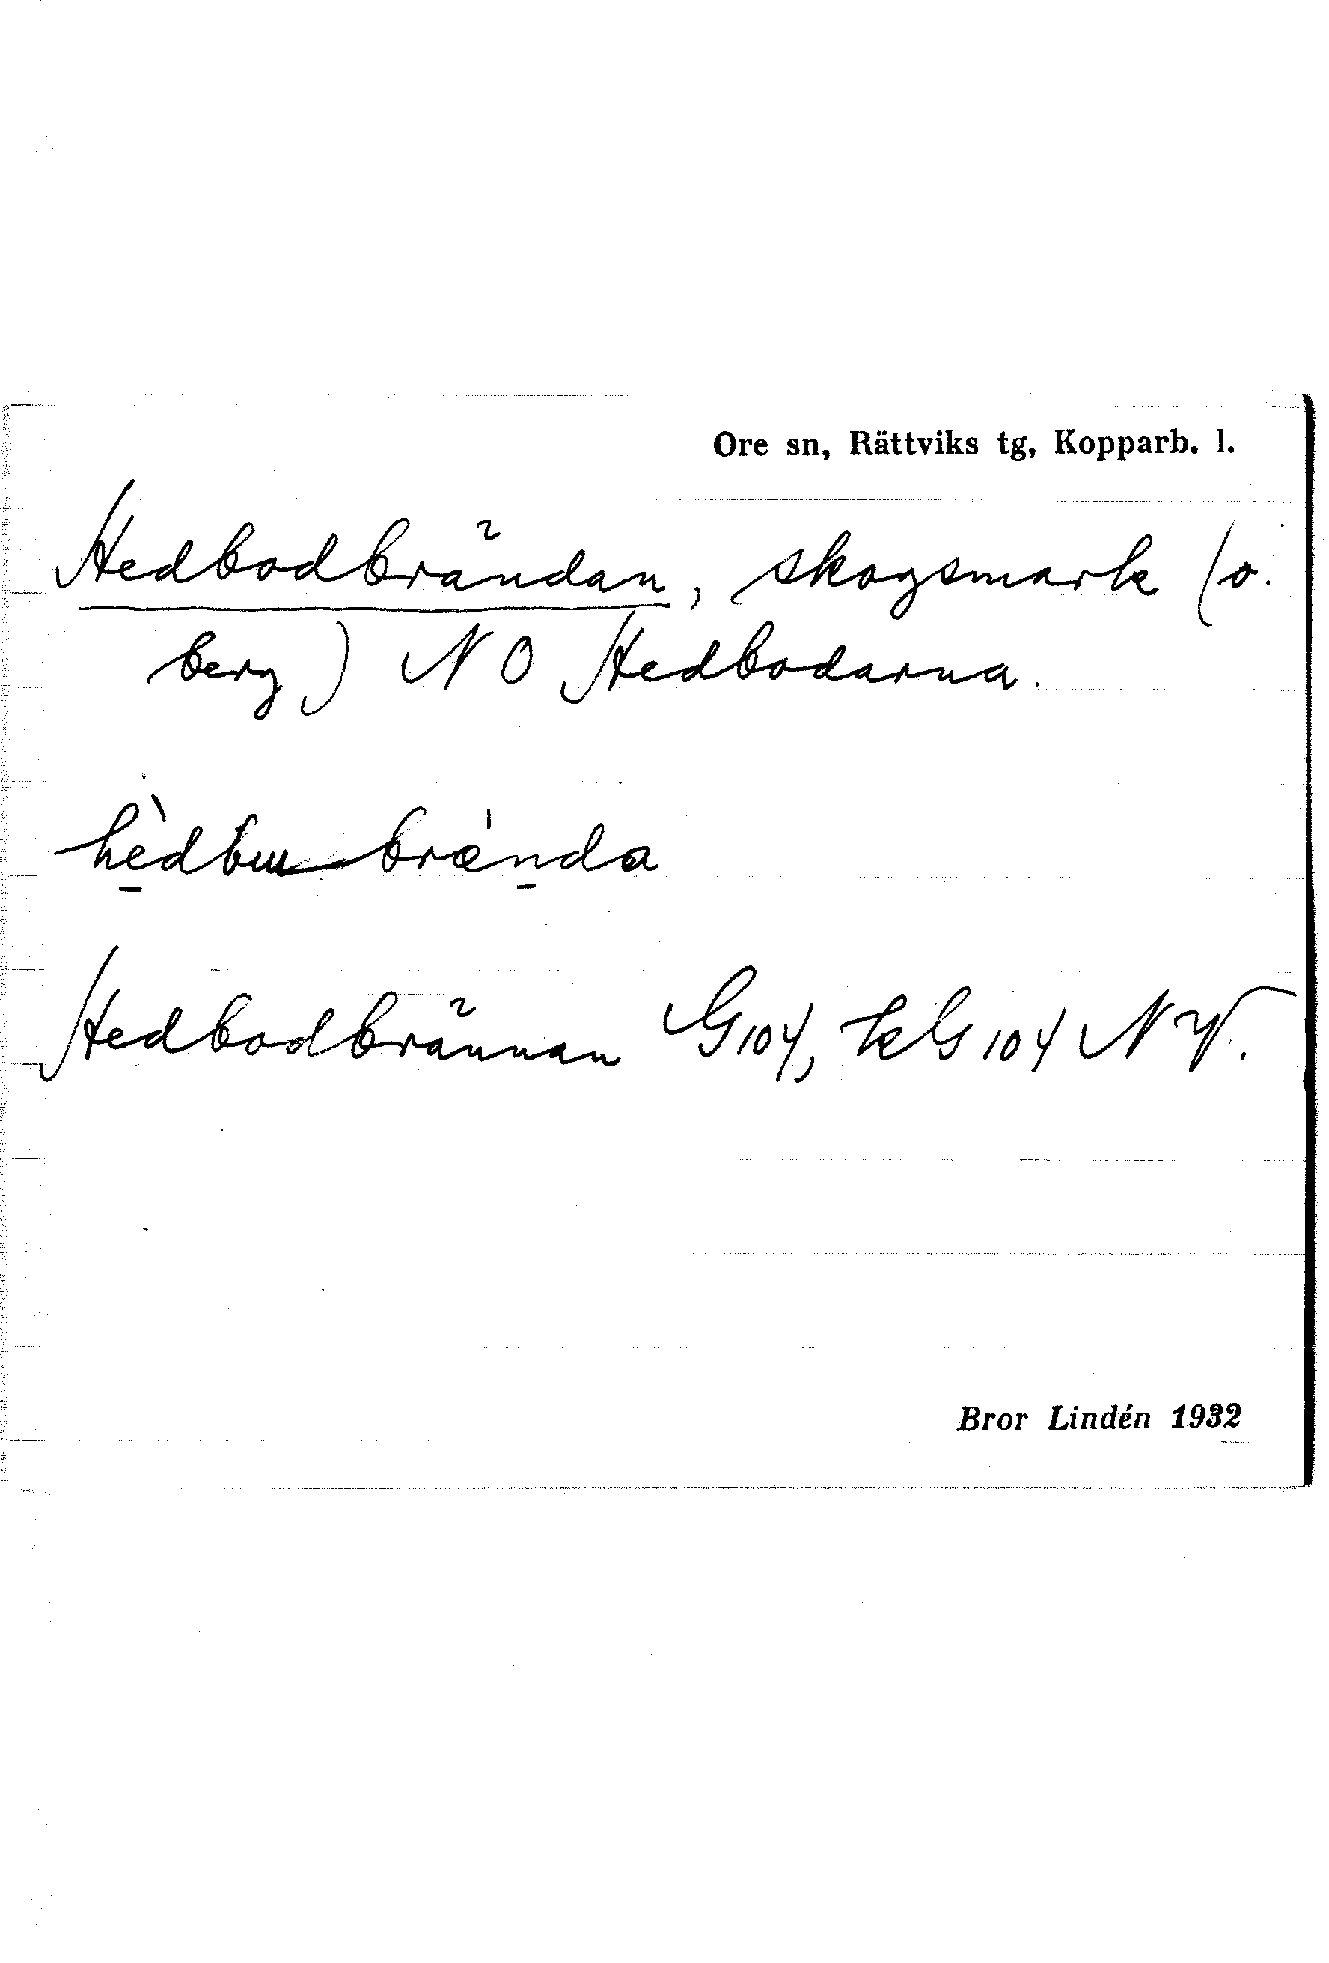 Ore sn, Rättviks tg, Kopparb. l.
Hedbodbrändan, skogsmark (o.
berg) NO Hedbodarna.
hèdbɯ brǽnda
Hedbodbrännan G104, kG104 NV.
Bror Lindén 1932